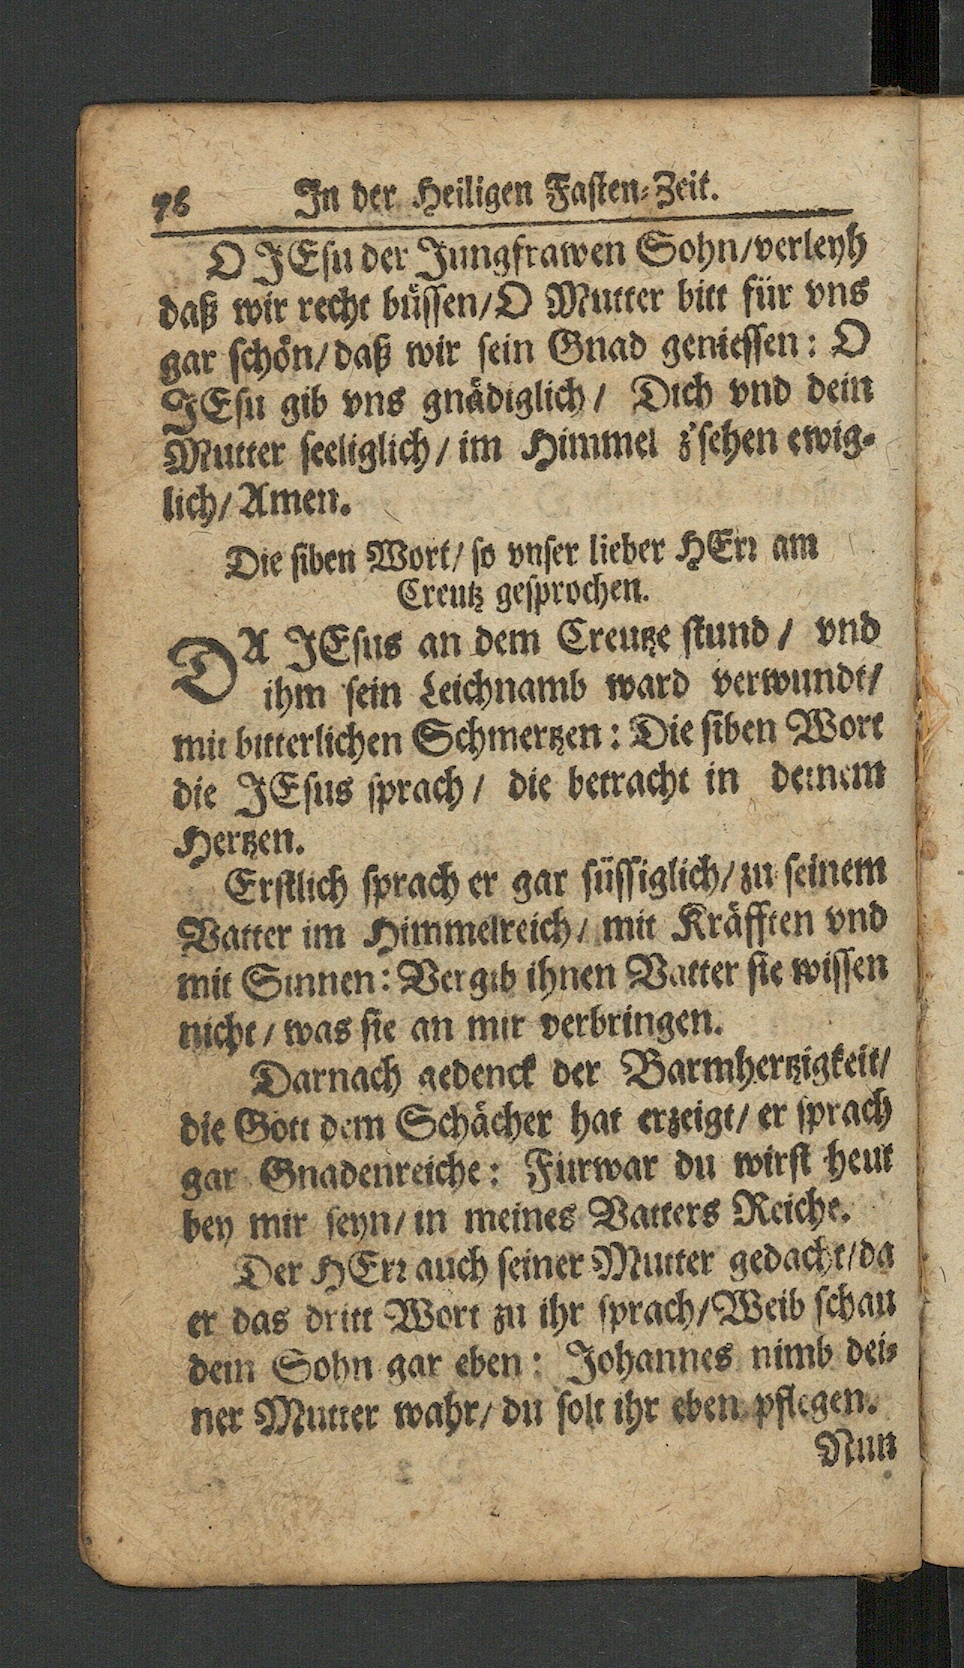 96 In der Heiligen Fasten-Zeit.
O JEsu der Jungfrawen Sohn/verleyh
daß wir recht büssen/O Mutter bitt für vns
gar schön/daß wir sein Gnad geniessen: O
JEsu gib vns gnädiglich/ Dich vnd dein
Mutter seeliglich/im Himmel z'sehen ewig-
lich/Amen.
Die siben Wort/so vnser lieber HErr am
Creutz gesprochen.
DA JEsus an dem Creutze stund/ vnd
ihm sein Leichnamb ward verwundt/
mit bitterlichen Schmertzen: Die siben Wort
die JEsus sprach/ die betracht in deinem
Hertzen.
Erstlich sprach er gar süssiglich/zu seinem
Vatter im Himmelreich/mit Kräfften vnd
mit Sinnen: Vergib ihnen Vatter sie wissen
nicht/was sie an mir verbringen.
Darnach gedenck der Barmhertzigkeit/
die Gott dem Schächer hat erzeigt/er sprach
gar Gnadenreiche: Fürwar du wirst heut
bey mir seyn/in meines Vatters Reiche.
Der HErr auch seiner Mutter gedacht/da
er das dritt Wort zu ihr sprach/Weib schau
dem Sohn gar eben: Johannes nimb dei-
ner Mutter wahr/du solt ihr eben pflegen.
Nun